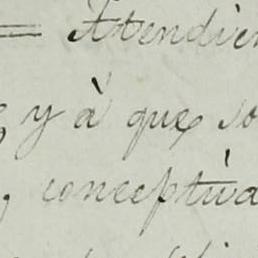 = Atendien
y à que so
, conceptiva